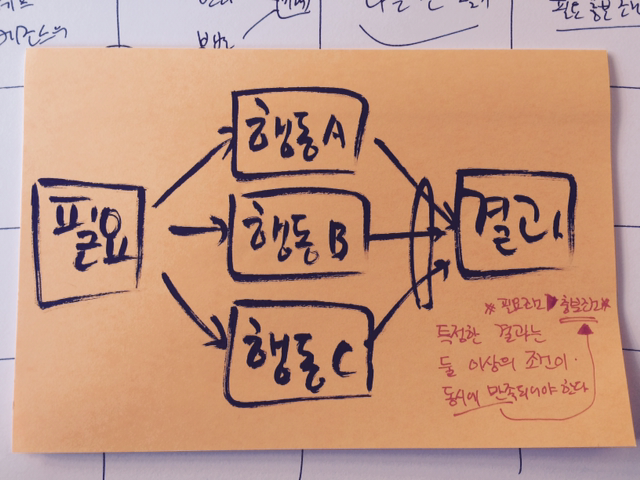 행동 A
필요
행동 B
결과
행동 C
*필요조건 충분조건*
특정한 결과는
둘 이상의 조건이
동시에 만족되어야 한다